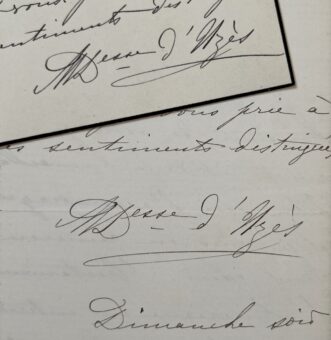 vous
sentiments dis
MDesse d'Uzès
vous prie à
es sentiments distingués
MDesse d'Uzès
Dimanche soir